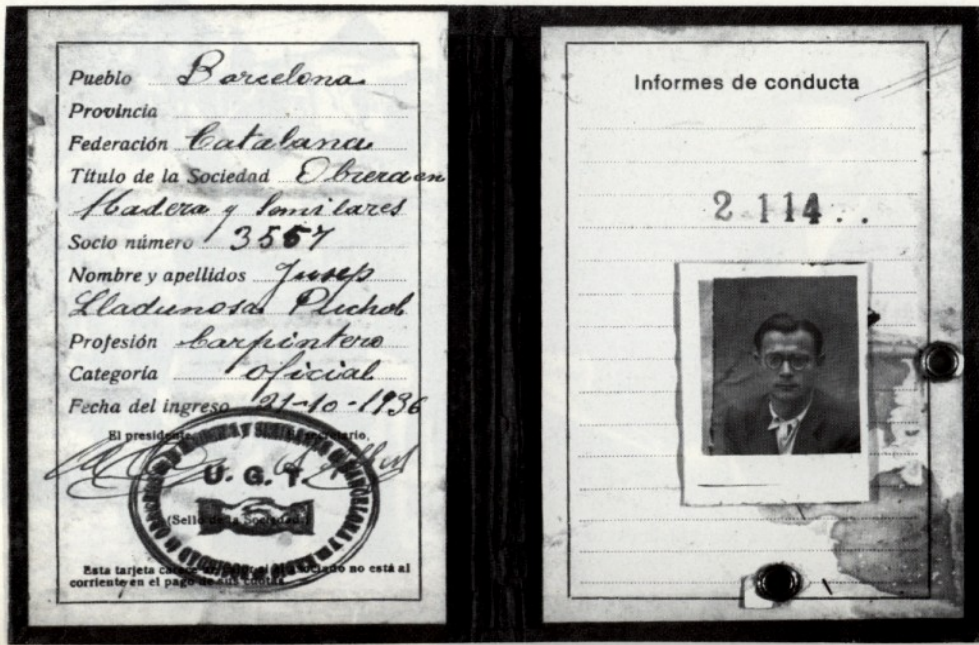 Pueblo Barcelona
Provincia
Federación Catalana
Título de la Sociedad Obrera en
Madera y Similares
Socio número 3557
Nombre y apellidos Jusep
Lladunosa Puchol
Profesión Carpintero
Categoría oficial
Fecha del ingreso 21-10-1936
El presidente, secretario,
U. G. T.
(Sello de la Sociedad)
Esta tarjeta carece de valor si el asociado no está al
corriente en el pago de sus cuotas
Informes de conducta
2 114 . .